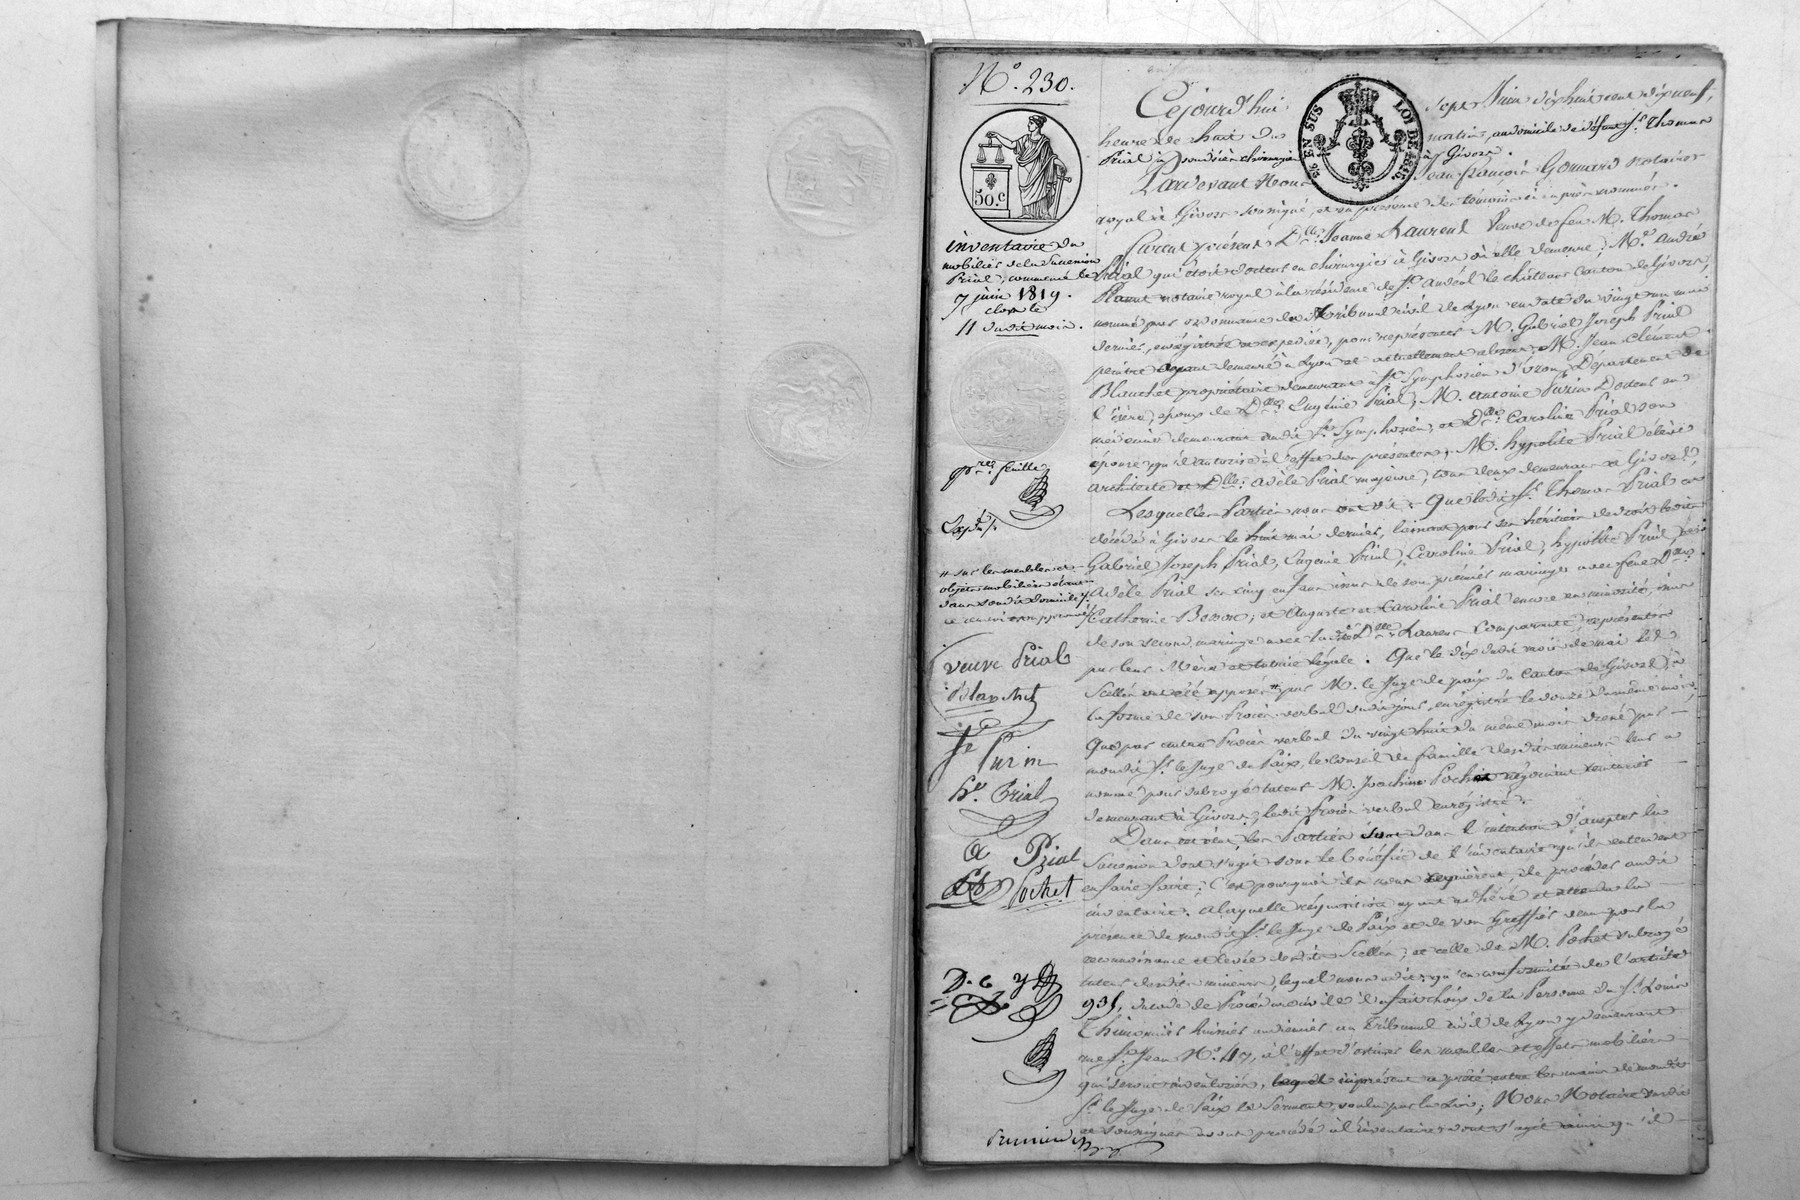 N.° 230.
50.c
EN SUS
LOI DE 1816
inventaire du
mobilier de la Succession
Prial, commencé le
7 juin 1819.
clos le
11 dudit mois.
1re feuille
Expd.
# sur les meubles et
objets mobiliers étant
dans son dit domicile
veuve Prial
Blanchet
Purin
hte Prial
A Prial
Pochet
Cejourd'hui sept Juin dix huit cent dix neuf,
heure de huit du matin, au domicile de défunt Sr. Thomas
Prial à Givors.
Pardevant Nous Jean françois Gonnard notaire
royal à Givors soussigné, et en présence des témoins ci après nommés.
Furent présents Dlle. Jeanne Laurent Veuve de feu M. Thomas
Prial qui étoit docteur en chirurgie à Givors où elle demeure; Me. André
notaire royal à la résidence de St. Andéol le château Canton de Givors,
nommé par ordonnance du Tribunal civil de Lyon en date du vingt un mai
dernier, enrégistrée et expediée, pour représenter M. Gabriel Joseph Prial
peintre ayant demeuré à Lyon et actuellement absent; M. Jean Clément
Blanchet propriétaire demeurant à St. Symphorien d'Ozon, Département de
l'isère, époux de Dme. Eugénie Prial; M. Antoine Purin Docteur en
médecine demeurant audit St. Symphorien, et De. Caroline Prial son
épouse qu'il autorise à l'effet des présentes; M. hypolite Prial élève
architecte et Dlle. Adèle Prial majeure, tous deux demeurant à Givors,
Lesquelles Parties nous ont dit: Que ledit Sr. Thomas Prial est
décédé à Givors le huit mai dernier, laissant pour ses héritiers de droit
Gabriel Joseph Prial, Eugénie Prial, Caroline Prial, hypolite Prial, et
Adèle Prial ses cinq enfans issus de son premier mariage avec feue Dme.
Catherine Bosson; et Auguste et Caroline Prial encore en minorité, issus
de son second mariage avec lad. Dlle. Laurent Comparante, représentés
par leur Mère et tutrice légale. Que le dix dudit mois de mai les
Scellés ont été apposés # par M. le Juge de paix du Canton de Givors, à
la forme de son Procès verbal dudit jour, enrégistré le douze du même mois.
Que par autre Procès verbal du vingt huit du même mois dressé par
mondit Sr. le Juge de Paix, le Conseil de famille desdits mineurs leur a
nommé pour subrogé tuteur M. Joachim Pochet négociant teinturier
demeurant à Givors, ledit Procès verbal enrégistré.
Dans cet état les Parties sont dans l'intention d'accepter la
Succession dont s'agit sous le bénéfice de l'inventaire qu'ils entendent
en faire faire; C'est pourquoi ils nous requièrent, de procéder audit
inventaire. A laquelle réquisition ayant adhéré et attendu la
présence de mondit Sr. le Juge de Paix et de son Greffier venu pour la
reconnoissance et levée desdits Scellés, et celle de M. Pochet subrogé
tuteur desdits mineurs, lequel nous a dit qu'en conformité de l'article
935, du code de Procédure civile il a fait choix de la Personne du Sr. Louis
Thimonnier huissier audiencier au Tribunal civil de Lyon y demeurant
rue St. Jean N.° 47, à l'effet d'estimer les meubles et effets mobiliers
qui seront inventoriés, lequel ici présent a prêté entre les mains de mondit
Sr. le Juge de Paix le Serment voulu par la Loi; Nous Notaire susdit
et soussigné avons procédé à l'inventaire dont s'agit ainsi qu'il